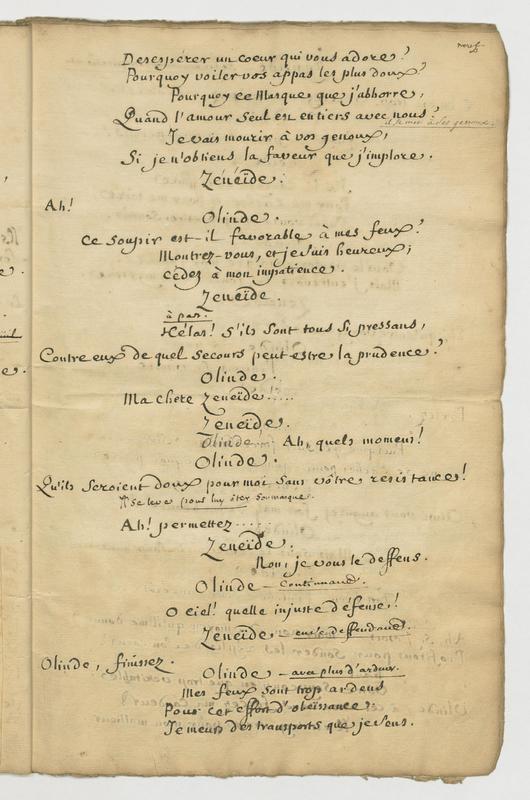 neuf
Desesperer un coeur qui vous adore?
Pourquoy voiler vos appas les plus doux?
Pourquoy ce Masque que j'abhorre,
Quand l'amour seul est en tiers avec nous?
il se met à ses genoux.
Je vais mourir à vos genoux,
Si je n'obtiens la faveur que j'implore.
Zeneïde.
Ah!
Olinde.
Ce soupir est-il favorable à mes feux?
Montrez-vous, et je suis heureux;
Cédez à mon impatience.
Zeneïde.
à part.
Hélas! s'ils sont tous si pressans,
Contre eux de quel secours peut estre la prudence?
Olinde.
Ma chere Zeneïde!....
Zeneïde.
Olinde.... Ah, quels momens!
Olinde.
Qu'ils seroient doux pour moi sans vôtre resistance!
Il se leve pour luy ôter son masque.
Ah! permettez......
Zeneïde.
Non, je vous le deffens.
Olinde - Continuant.
O ciel! quelle injuste défense!
Zeneïde - en se deffendant.
Olinde, finissez.
Olinde - avec plus d'ardeur.
Mes feux sont trop ardens
Pour cet effort d'obeïssance;
Je meurs des transports que je sens.